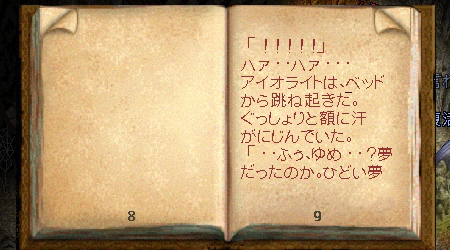 「！！！！！」
ハァ・・ハァ・・・
アイオライトは、ベッド
から跳ね起きた。
ぐっしょりと額に汗
がにじんでいた。
「・・ふぅ、ゆめ・・？夢
だったのか。ひどい夢
8
9